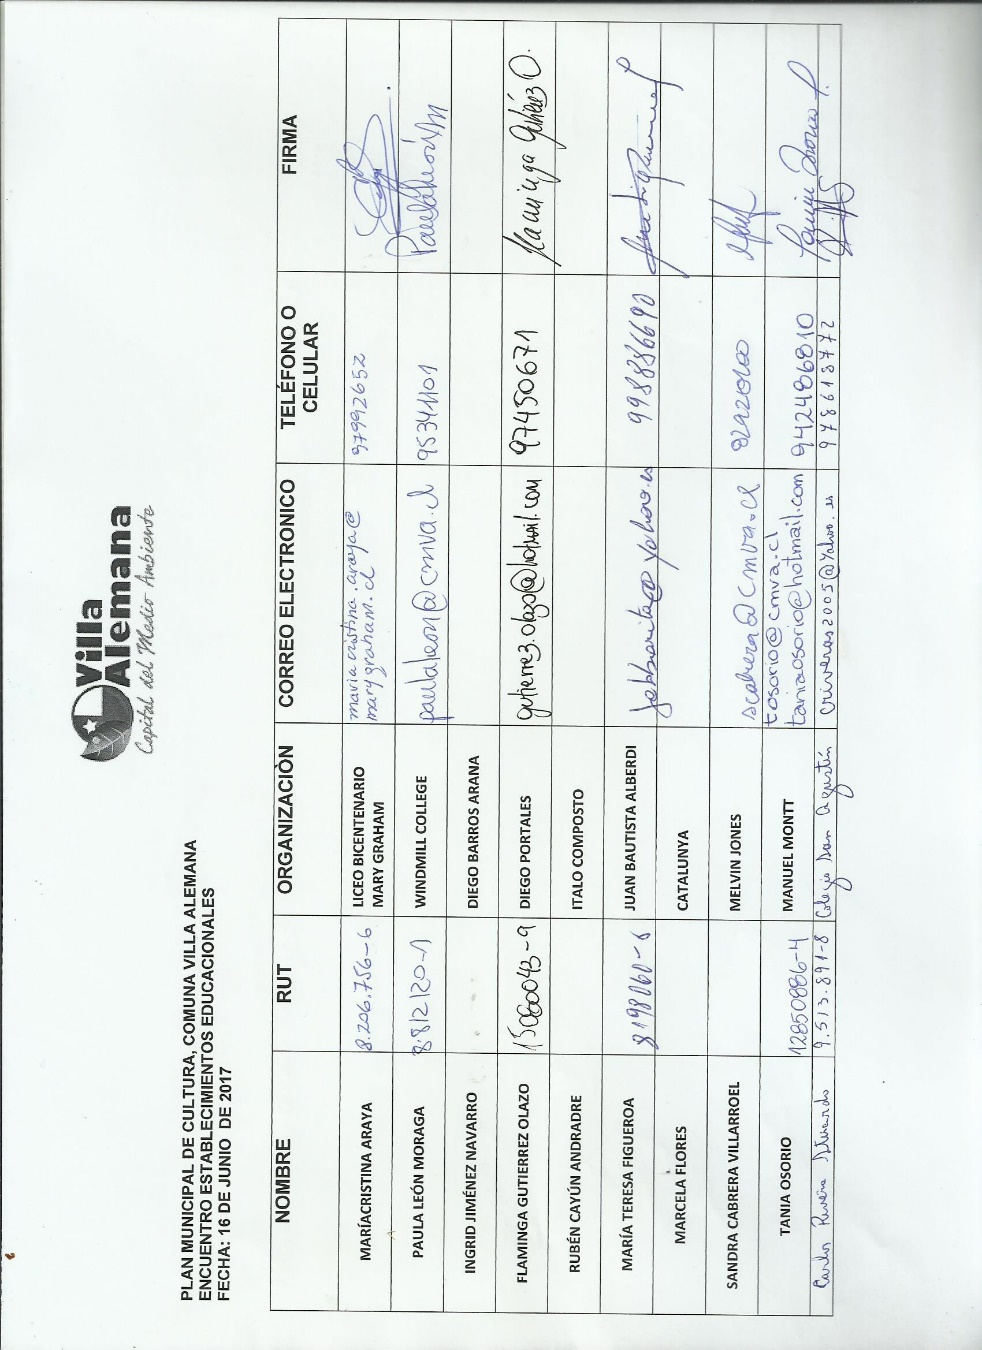 Villa
Alemana
Capital del Medio Ambiente
PLAN MUNICIPAL DE CULTURA, COMUNA VILLA ALEMANA
ENCUENTRO ESTABLECIMIENTOS EDUCACIONALES
FECHA: 16 DE JUNIO DE 2017
NOMBRE RUT ORGANIZACIÒN CORREO ELECTRONICO TELÉFONO O CELULAR FIRMA
MARÍACRISTINA ARAYA 8.206.756-6 LICEO BICENTENARIO MARY GRAHAM maria cristina.araya@marygraham.cl 97992652
PAULA LEÓN MORAGA 8.812120-1 WINDMILL COLLEGE paulaleon@cmva.cl 95341101
INGRID JIMÉNEZ NAVARRO DIEGO BARROS ARANA
FLAMINGA GUTIERREZ OLAZO 15060043-9 DIEGO PORTALES gutierrez.olazo@hotmail.com 97450671 Flaminga Gutiérrez O.
RUBÉN CAYÚN ANDRADRE ITALO COMPOSTO
MARÍA TERESA FIGUEROA 8198060-6 JUAN BAUTISTA ALBERDI 998886690
MARCELA FLORES CATALUNYA
SANDRA CABRERA VILLARROEL MELVIN JONES scabrera@cmva.cl
TANIA OSORIO 12850886-4 MANUEL MONTT tosorio@cmva.cl taniaosorio@hotmail.com 942486810
Carlos Rivera 9.513.891-8 Colegio San Agustín criveras2005@yahoo.es 978613772